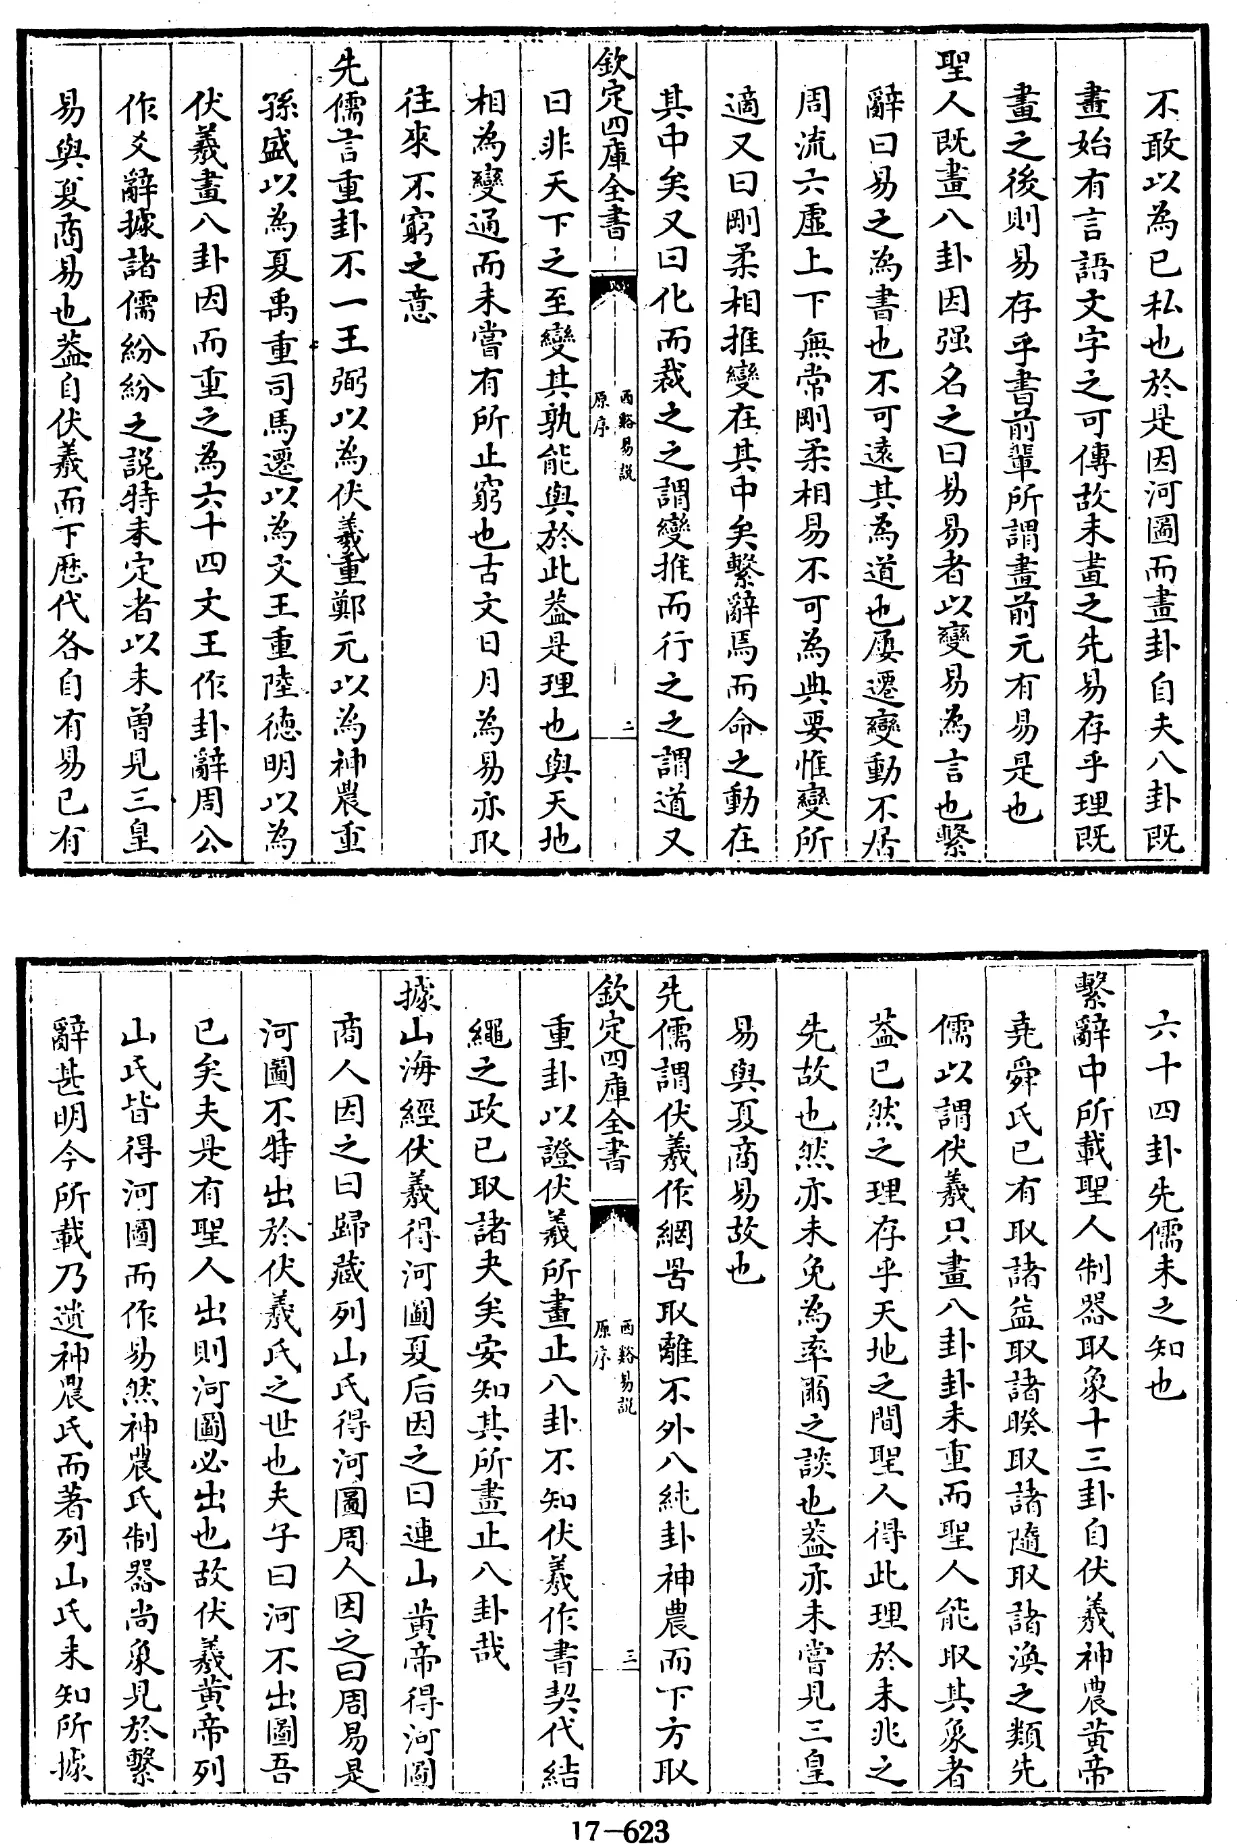 不敢以為已私也於是因河圖而畫卦自夫八卦既
畫始有言語文字之可傳故未畫之先易存乎理既
畫之後則易存乎書前輩所謂畫前元有易是也
聖人既畫八卦因强名之曰易易者以變易為言也繫
辭曰易之為書也不可逺其為道也屢遷變動不居
周流六虛上下無常剛柔相易不可為典要惟變所
適又曰剛柔相推變在其中矣繫辭焉而命之動在
其中矣又曰化而裁之之謂變推而行之之謂道又
欽定四庫全書
西谿易說
原序
二
曰非天下之至變其孰能與於此葢是理也與天地
相為變通而未嘗有所止窮也古文日月為易亦取
徃來不窮之意
先儒言重卦不一王弼以為伏羲重鄭元以為神農重
孫盛以為夏禹重司馬遷以為文王重陸德明以為
伏羲畫八卦因而重之為六十四文王作卦辭周公
作爻辭據諸儒紛紛之説特未定者以未曽見三皇
易與夏商易也葢自伏羲而下歴代各自有易已有
六十四卦先儒未之知也
繫辭中所載聖人制器取象十三卦自伏羲神農黄帝
堯舜氏已有取諸益取諸暌取諸隨取諸渙之類先
儒以謂伏羲只畫八卦卦未重而聖人能取其象者
葢已然之理存乎天地之間聖人得此理於未兆之
先故也然亦未免為率爾之談也葢亦未嘗見三皇
易與夏商易故也
先儒謂伏羲作網罟取離不外八純卦神農而下方取
欽定四庫全書
西谿易說
原序
三
重卦以證伏羲所畫止八卦不知伏羲作書契代結
繩之政已取諸夬矣安知其所畫止八卦哉
據山海經伏羲得河圖夏后因之曰連山黄帝得河圖
商人因之曰歸藏列山氏得河圖周人因之曰周易是
河圖不特出於伏羲氏之世也夫子曰河不出圖吾
已矣夫是有聖人出則河圖必出也故伏羲黄帝列
山氏皆得河圖而作易然神農氏制器尚象見於繫
辭甚明今所載乃遺神農氏而著列山氏未知所據
17-623